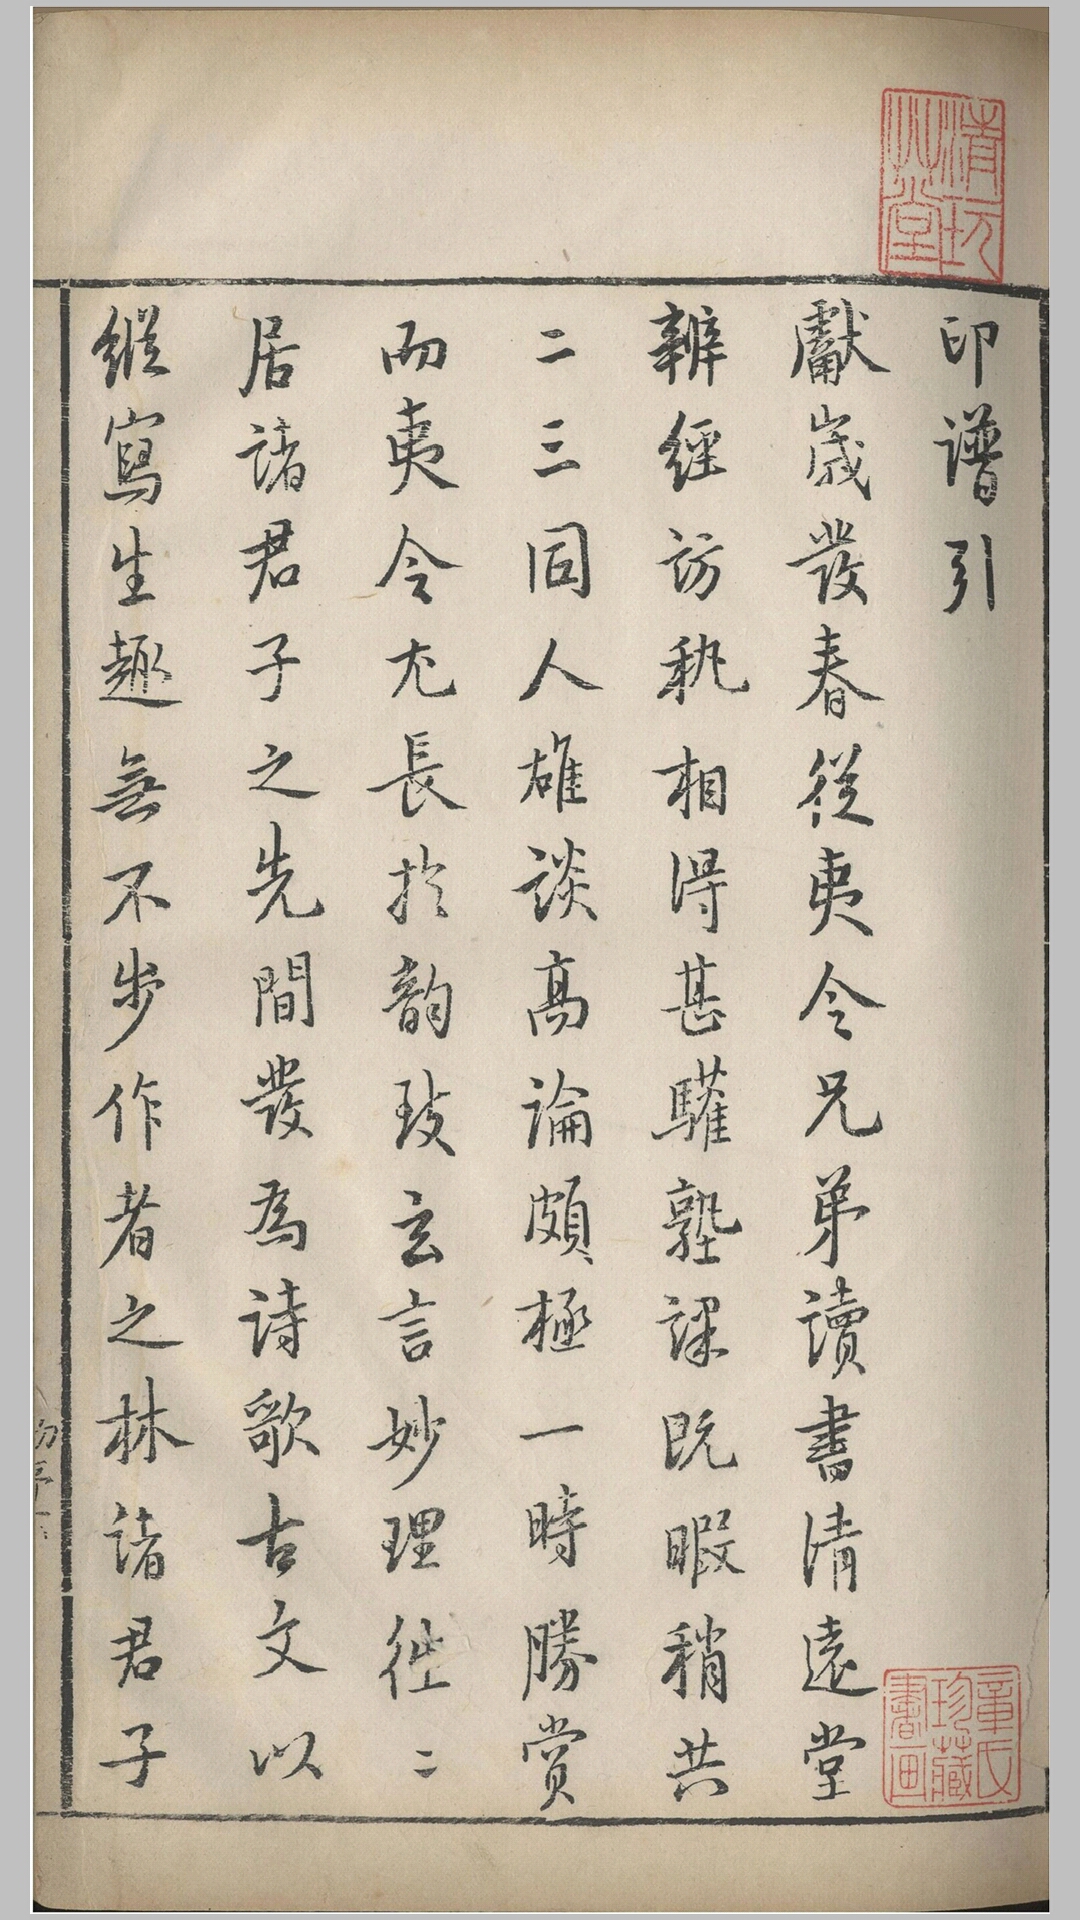 印譜引
獻歲發春從夷令兄弟讀書清遠堂
辨經訪執相得甚驩塾課既暇稍共
二三同人雄談高論頗極一時勝賞
而夷令尤長於韵致玄言妙理往二
居諸君子之先間發為詩歌古文以
縱寫生趣無不步作者之林諸君子
章氏珍藏書画